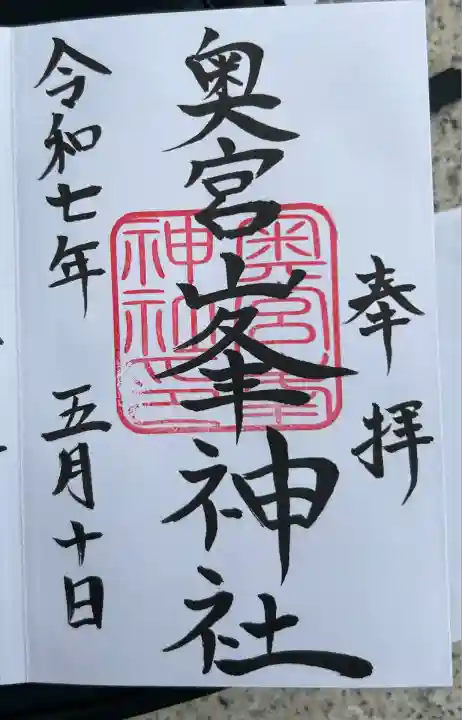 奉拝
奥宮峯神社
奥宮峯
神社印
令和七年 五月十日